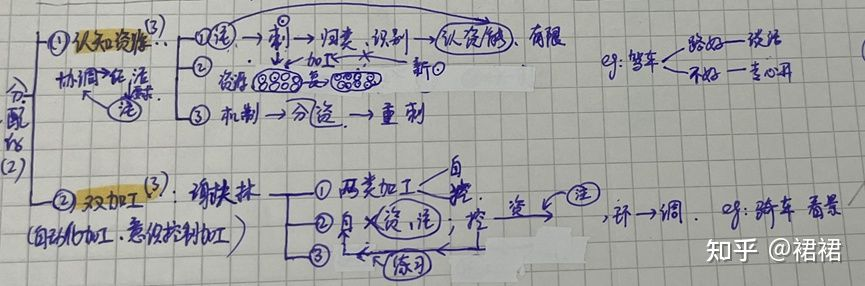 分配的(2)
① 认知资源(3)
协调→任,活
注
① 注→刺→归类、识别→认资(能)、有限
② 资源 新
加工
③ 机制→分资→重刺
eg:驾车 路好—谈话
不好—专心开
② 双加工(3):谢夫林
(自动化加工、意识控制加工)
① 两类加工 自
控
② 自×资,注;控 资 注,环→调. eg:骑车 看景
③ 练习
知乎 @裙裙